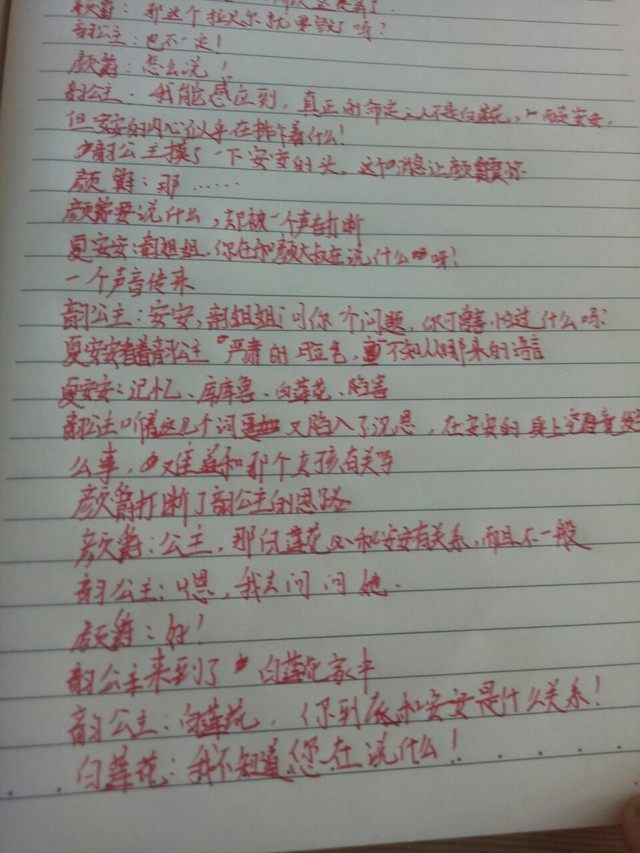 颜爵：那这个拉贝尔就要毁了吗？
韵公主：也不一定！
颜爵：怎么说！
韵公主：我能感应到，真正的命定之人不是白莲花，而是安安，
但安安的内心似乎在排斥着什么！
韵公主摸了一下安安的头，这个消息让颜爵
颜爵：那……
颜爵要说什么，却被一个声音打断
夏安安：韵姐姐，你在和颜大叔在说什么呀！
一个声音传来
韵公主：安安，韵姐姐问你个问题，你可过什么吗？
夏安安看着韵公主严肃的脸色，不知从哪来的语言
夏安安：记忆、库库鲁、白莲花、陷害
韵公主听着这几个词又陷入了沉思，在安安的身上究竟发
么事，难道和那个女孩有关
颜爵打断了韵公主的思路
颜爵：公主，那白莲花必和安安有关系，而且不一般
韵公主：嗯，我去问问她.
颜爵：好！
韵公主来到了白莲花家中
韵公主：白莲花，你到底和安安是什么关系！
白莲花：我不知道您在说什么！